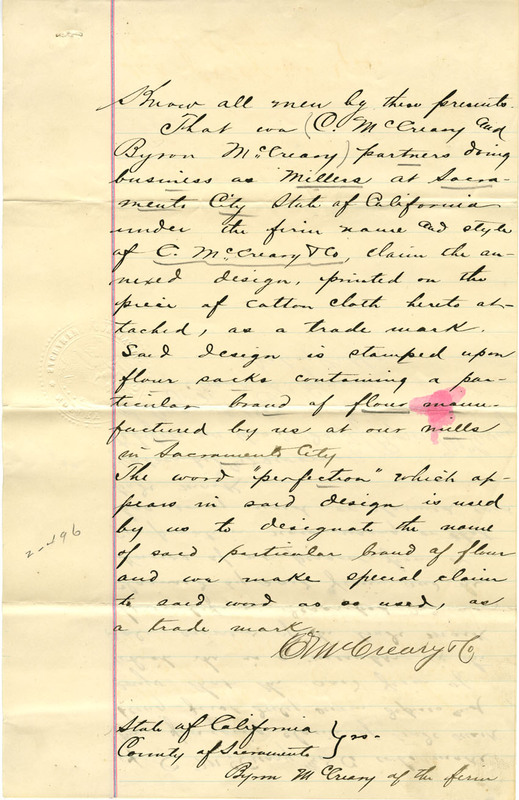 Know all men by these presents.
That we (C. McCreary and
Byron McCreary) partners doing
business as Millers at Sacra-
mento City State of California
under the firm name and style
of C. McCreary & Co, claim the an-
nexed design, printed on the
piece of cotton cloth hereto at-
tached, as a trade mark.
Said design is stamped upon
flour sacks containing a par-
ticular brand of flour manu-
factured by us at our mills
in Sacramento City
The word "perfection" which ap-
pears in said design is used
by us to designate the name
of said particular brand of flour
and we make special claim
to said word as so used, as
a trade mark.
C. McCreary & Co
State of California
County of Sacramento } ss.
Byron McCreary of the firm